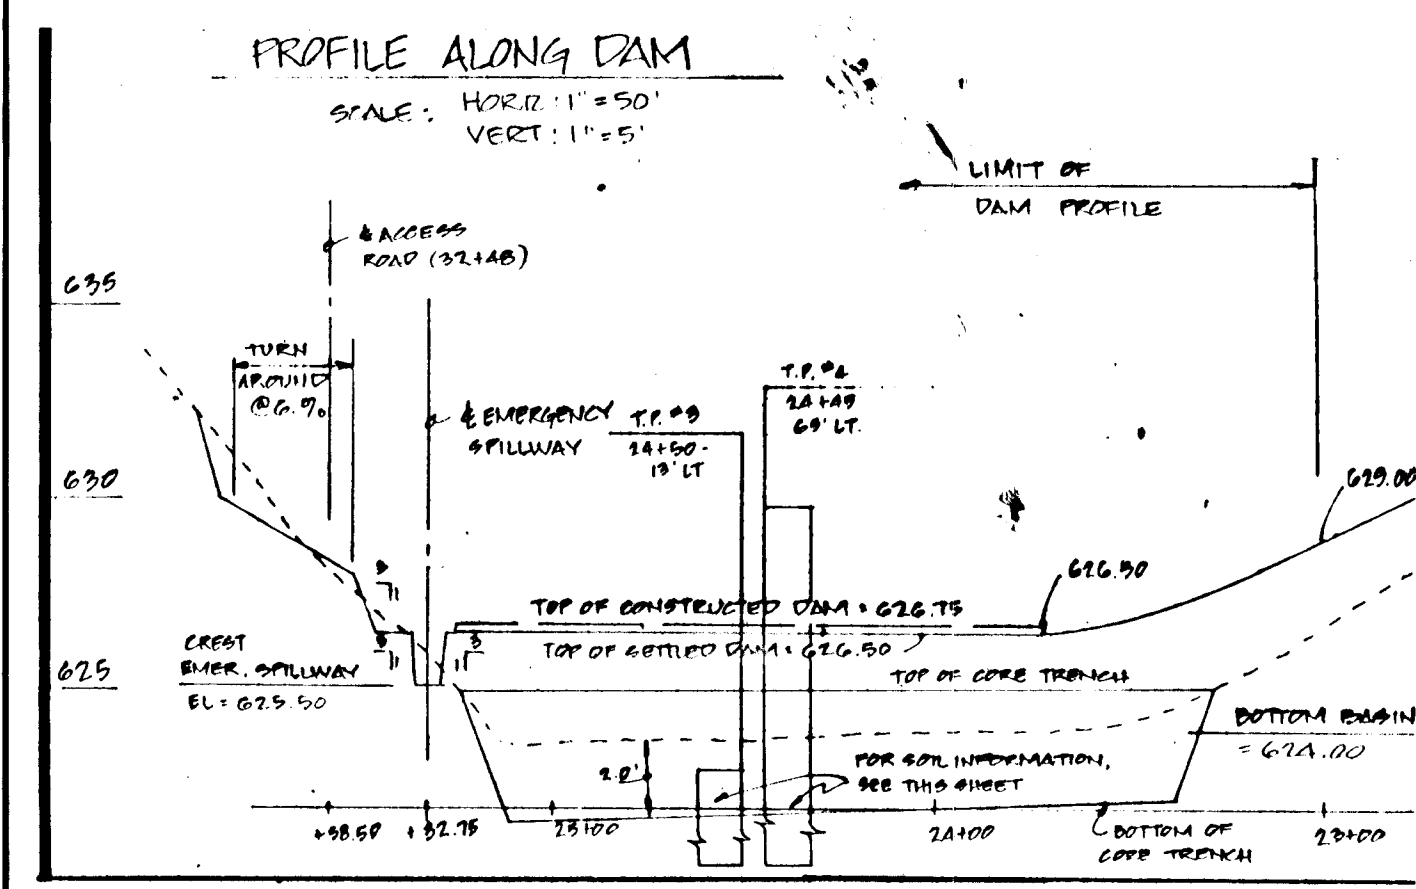 PROFILE ALONG DAM
SCALE: HORIZ: 1"=50'
VERT: 1"=5'
LIMIT OF
DAM PROFILE
℄ ACCESS
ROAD (32+48)
635
TURN
AROUND
@6.%
℄ EMERGENCY
SPILLWAY
T.P. #3
24+50-
13' LT
T.P. #4
24+49
69' LT.
630
629.00
3
1
626.50
TOP OF CONSTRUCTED DAM = 626.75
TOP OF SETTLED DAM = 626.50
CREST
EMER. SPILLWAY
EL = 625.50
3
1
3
1
625
TOP OF CORE TRENCH
BOTTOM BASIN
= 624.00
FOR SOIL INFORMATION,
SEE THIS SHEET
2.0'
+58.50
+32.75
25+00
24+00
BOTTOM OF
CORE TRENCH
23+00